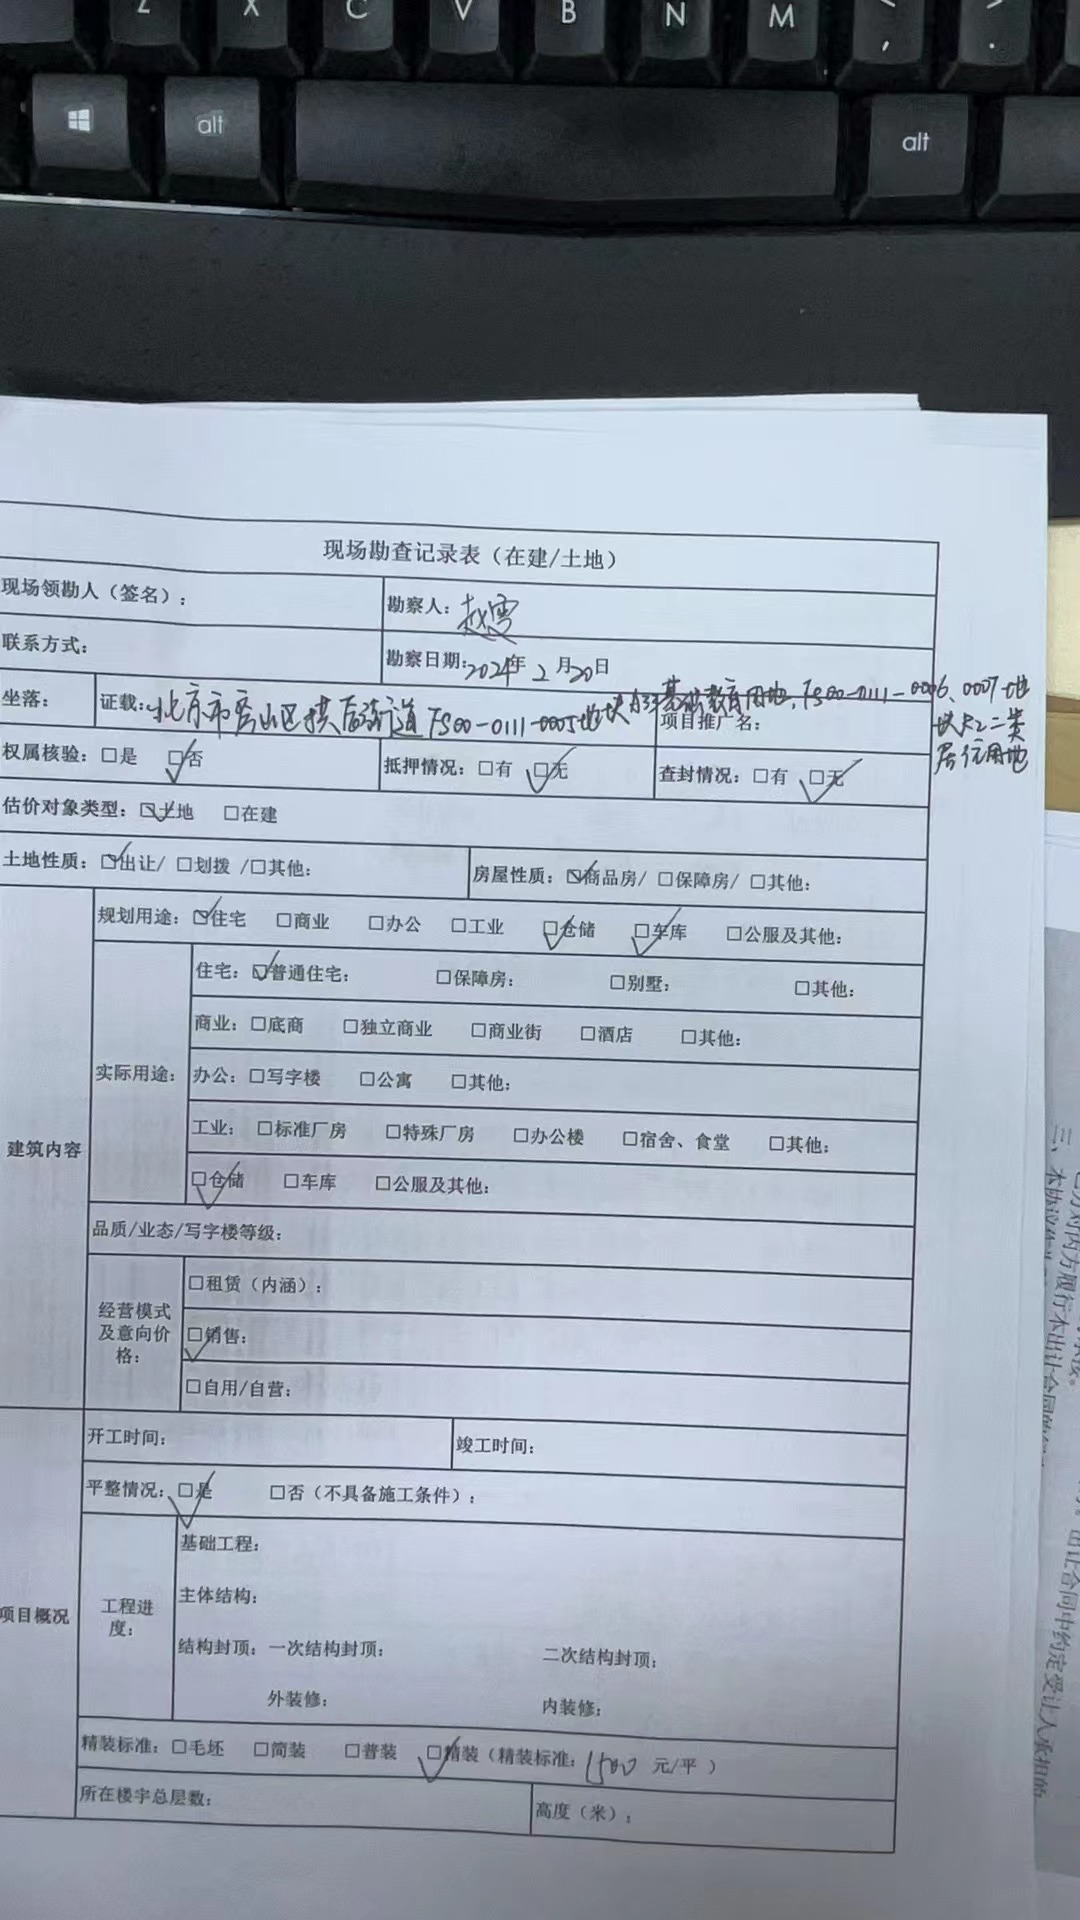 Z X C V B N M < >
, .
alt alt
现场勘查记录表（在建/土地）
现场领勘人（签名）： 勘察人：赵雪
联系方式： 勘察日期：2024年 2 月20日
坐落： 证载：北京市房山区拱辰街道FS00-0111-0005地块 基础教育用地，FS00-0111-0006、0007地
块R2二类
居住用地
项目推广名：
权属核验：☐是 ☑否 抵押情况：☐有 ☑无 查封情况：☐有 ☑无
估价对象类型：☑土地 ☐在建
土地性质：☑出让/ ☐划拨 /☐其他： 房屋性质：☑商品房/ ☐保障房/ ☐其他：
建筑内容
规划用途：☑住宅 ☐商业 ☐办公 ☐工业 ☑仓储 ☑车库 ☐公服及其他：
实际用途：
住宅：☑普通住宅： ☐保障房： ☐别墅： ☐其他：
商业：☐底商 ☐独立商业 ☐商业街 ☐酒店 ☐其他：
办公：☐写字楼 ☐公寓 ☐其他：
工业：☐标准厂房 ☐特殊厂房 ☐办公楼 ☐宿舍、食堂 ☐其他：
☑仓储 ☐车库 ☐公服及其他：
品质/业态/写字楼等级：
经营模式
及意向价
格：
☐租赁（内涵）：
☑销售：
☐自用/自营：
项目概况
开工时间： 竣工时间：
平整情况：☑是 ☐否（不具备施工条件）：
工程进
度：
基础工程：
主体结构：
结构封顶：一次结构封顶： 二次结构封顶：
外装修： 内装修：
精装标准：☐毛坯 ☐简装 ☐普装 ☑精装（精装标准：1500 元/平 ）
所在楼宇总层数： 高度（米）：